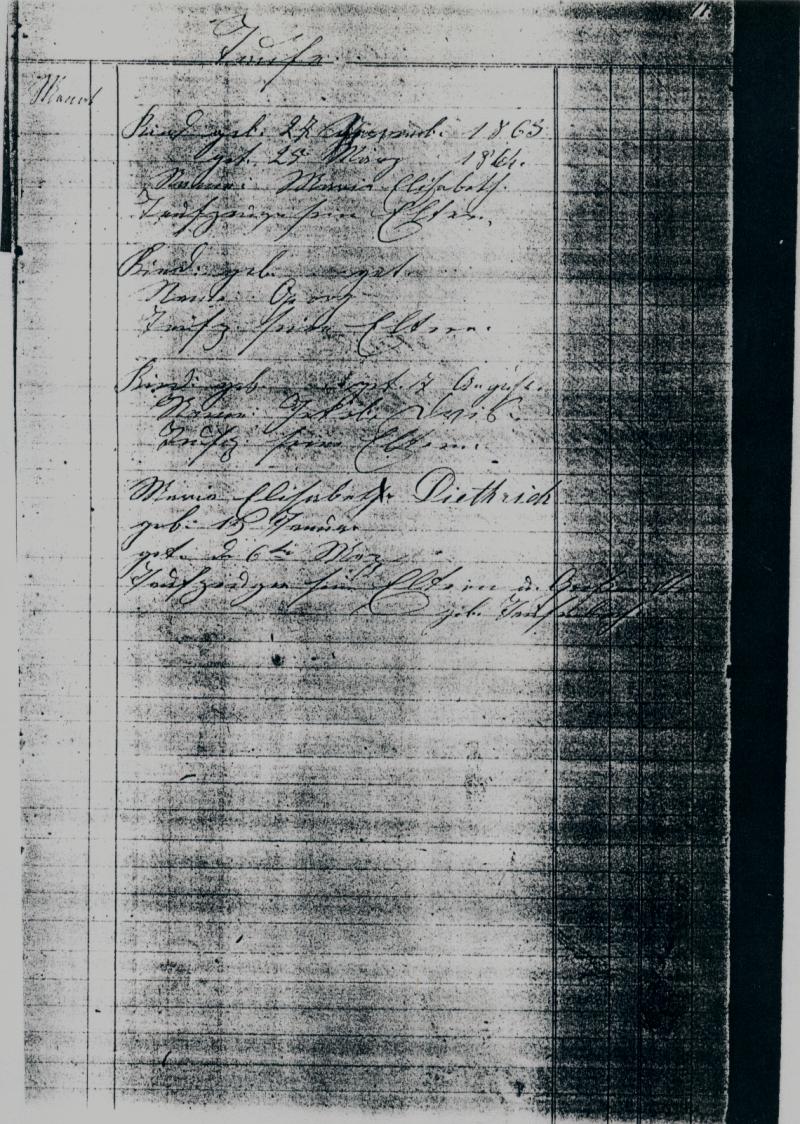 11.
Taufe.
Kind geb. 27 1863
get. 25 März 1864.
Name: Maria Elisabeth.
Taufzeugen seine Eltern.
Kind. geb. get.
Name: Georg
Taufz. seine Eltern.
Kind. geb. get. 7 August.
Name:
Taufz. seine Eltern.
Maria Elisabeth Diethrich
geb. 18 Januar
get. d. 6ten März
Taufzeugen seine Eltern u.
geb.